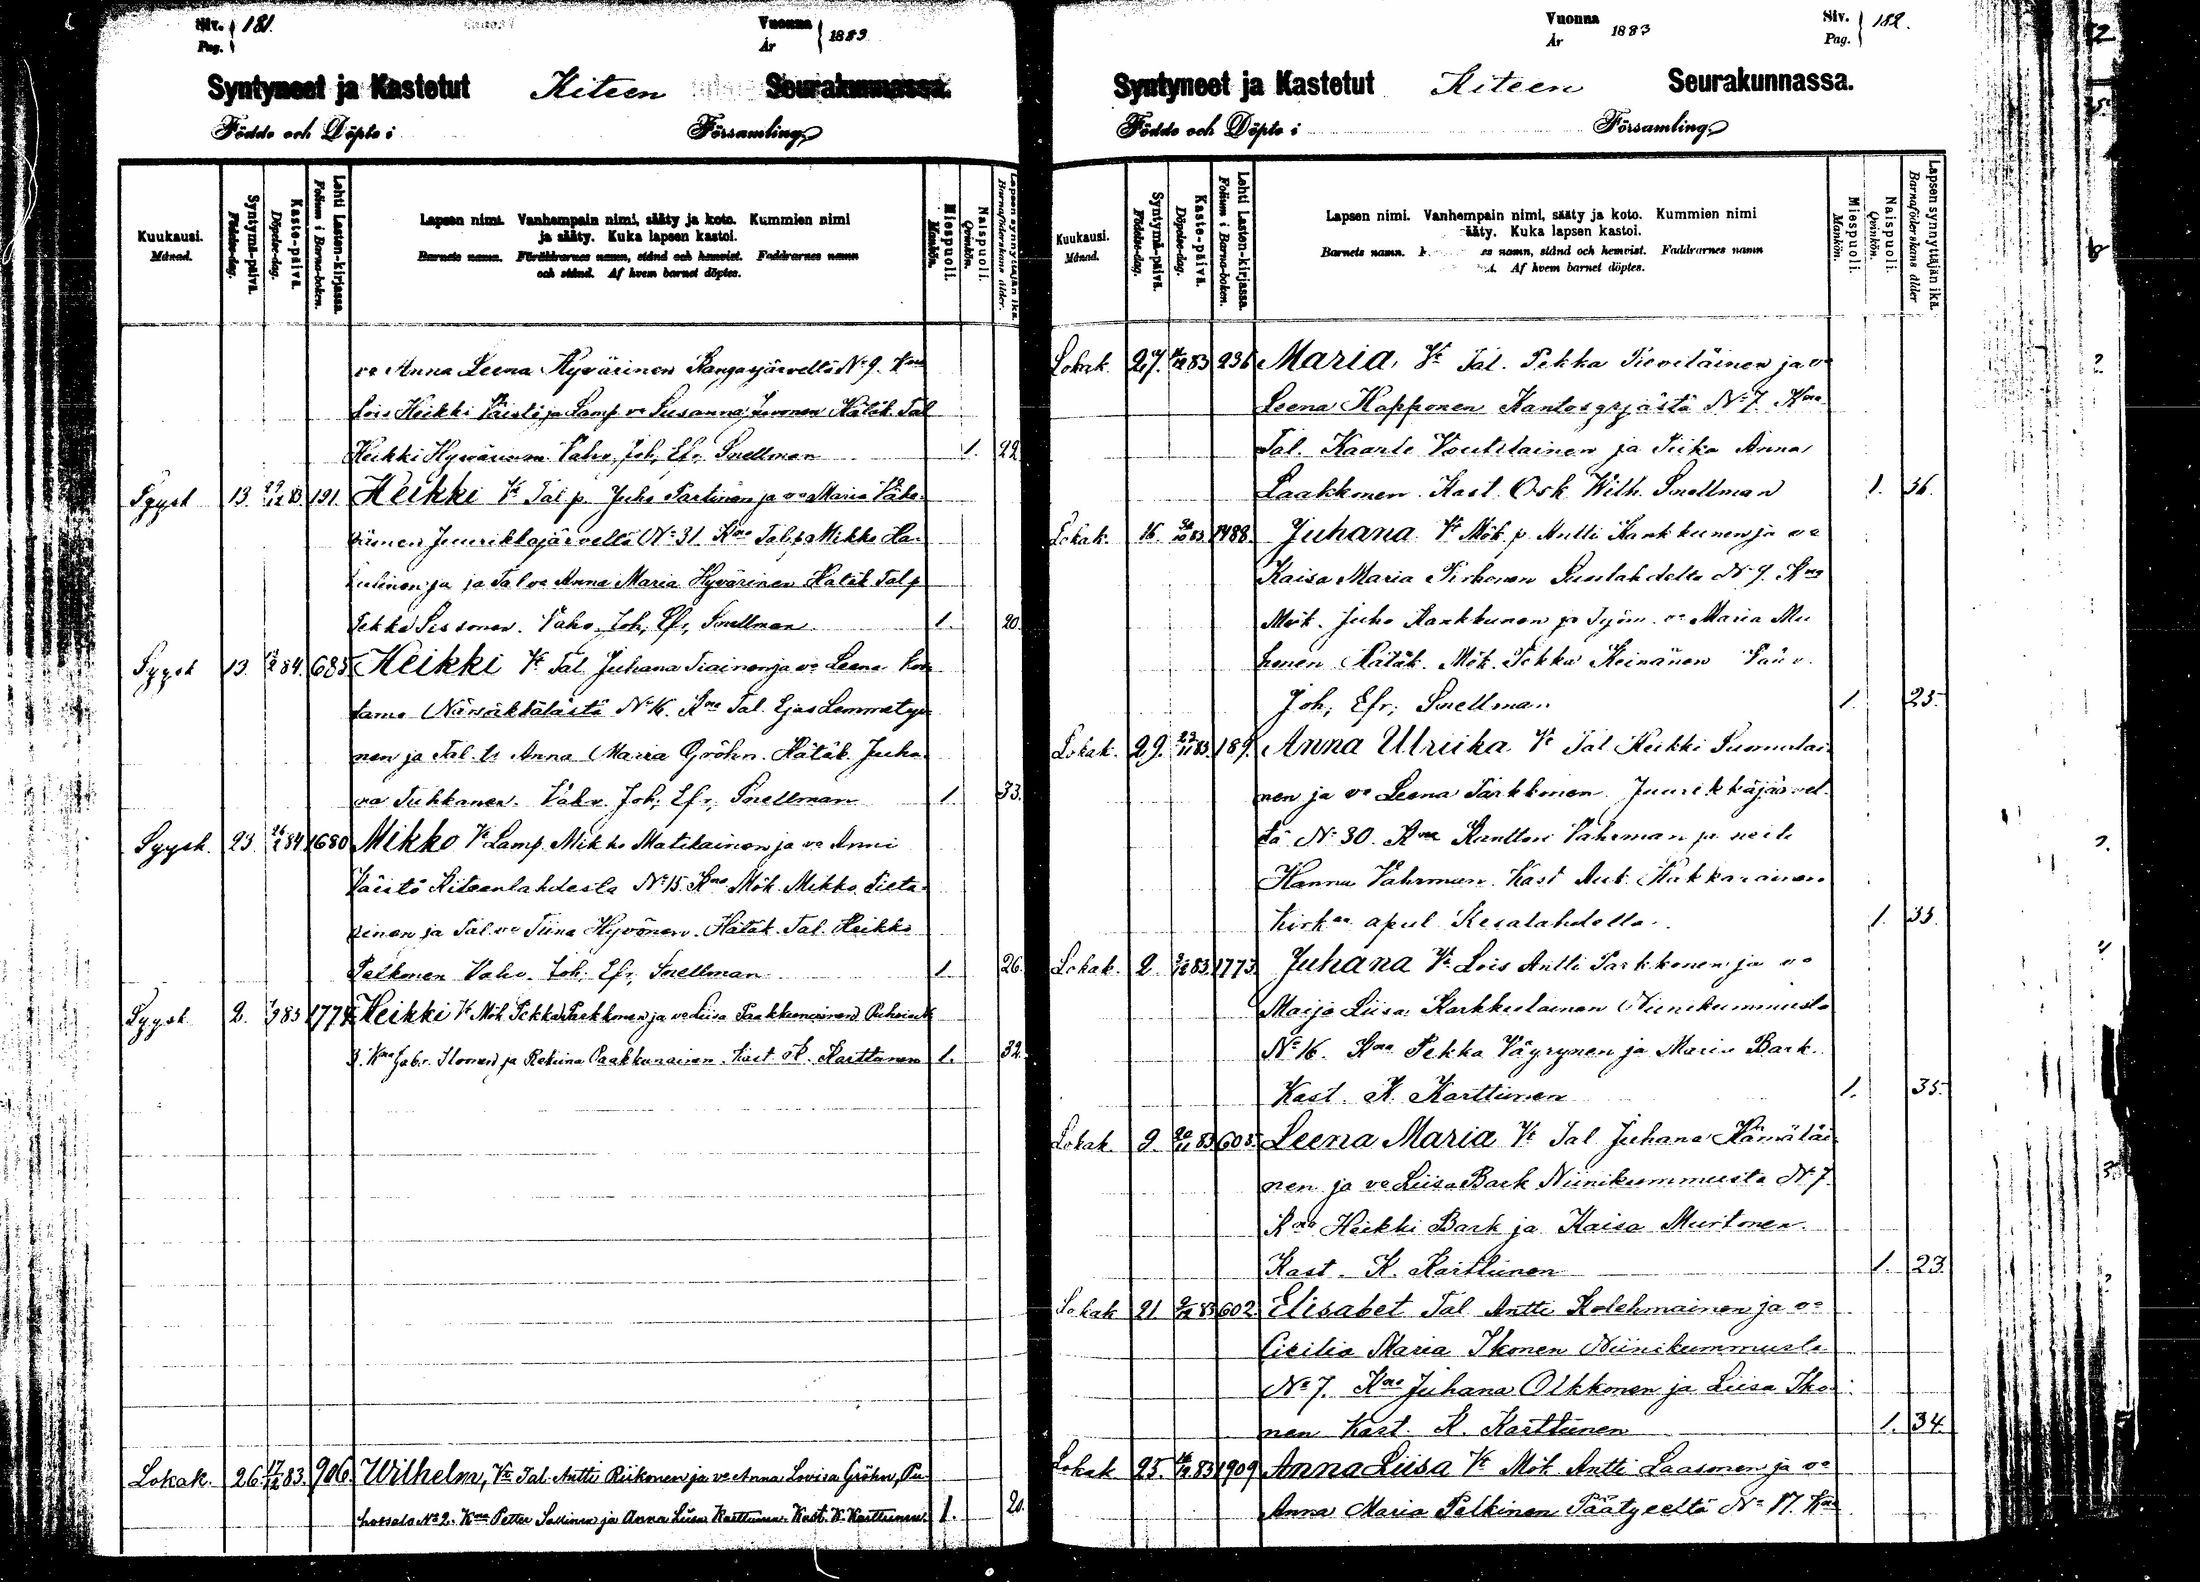 Siv. 181.
Pag.
Vuonna 1883
År
Syntyneet ja Kastetut Kiteen Seurakunnassa.
Födde och Döpte i Församling
Kuukausi.
Månad.
Syntymä-päivä.
Födelse-dag.
Kaste-päivä.
Döpelse-dag.
Lehti Lasten-kirjassa.
Folium i Barna-boken.
Lapsen nimi. Vanhempain nimi, sääty ja koto. Kummien nimi
ja sääty. Kuka lapsen kastoi.
Barnets namn. Föräldrarnes namn, stånd och hemvist. Faddrarnes namn
och stånd. Af hvem barnet döptes.
Miespuoli.
Mankön.
Naispuoli.
Qvinkön.
Lapsen synnyttäjän ikä.
Barnaföderskans ålder.
vo Anna Leena Hyvärinen Kangasjärveltä No 9. Kmo
Lois Heikki Väistö ja Lamp vo Susanna Juvonen Hätäk. Tal
Heikki Hyvärinen Vahv. Joh. Efr. Snellman 1. 22
Syysk 13. 29/12 83. 191. Heikki Vt Tal p. Juho Partinen ja vo Maria
Juurikkajärveltä No 31. Kmo Tal. p Mikko Ha-
ja Tal vo Anna Maria Hyvärinen Hätäk Tal p
Pekka Sissonen. Vahv. Joh. Efr. Snellman 1. 20.
Syysk 13. 84. 685. Heikki Vt Tal Juhana Tiainen ja vo Leena
Närsäkkälästä No 16. Kmo Tal. Ejas Lemmety-
nen ja Tal. tr Anna Maria Gröhn. Hätäk. Juha-
na Tukkanen. Vahv. Joh. Efr. Snellman 1. 33.
Syysk. 23. 84 1680 Mikko Vt Lamp. Mikko Matikainen ja vo Anni
Väistö Kiteenlahdesta No 15. Kmo Mök. Mikko Pieta-
rinen ja Tal. vo Tiina Hyvönen. Hätäk. Tal. Heikki
Pelkonen Vahv. Joh. Efr. Snellman 1 26.
Syysk 2. 83 1774 Heikki Vt Mök Pekka Parkkonen ja vo Liisa Paakkunainen
3. Kmo Gabr. Ilonen ja Paakkunainen. Kast. K. Karttunen 1. 32.
Lokak. 26. 17/12 83. 906. Wilhelm, Vt Tal. Antti Riikonen ja vo Anna Lovisa Gröhn, Pu-
hossalo No 2. Kmo Petter Sallinen ja Anna Liisa Karttunen. Kast. K. Karttunen. 1. 20.
Vuonna 1883
År
Siv. 182.
Pag.
Syntyneet ja Kastetut Kiteen Seurakunnassa.
Födde och Döpte i Församling
Kuukausi.
Månad.
Syntymä-päivä.
Födelse-dag.
Kaste-päivä.
Döpelse-dag.
Lehti Lasten-kirjassa.
Folium i Barna-boken.
Lapsen nimi. Vanhempain nimi, sääty ja koto. Kummien nimi
sääty. Kuka lapsen kastoi.
Barnets namn. es namn, stånd och hemvist. Faddrarnes namn
Af hvem barnet döptes.
Miespuoli.
Mankön.
Naispuoli.
Qvinkön.
Lapsen synnyttäjän ikä.
Barnaföderskans ålder
Lokak. 27. 83 236 Maria, Vt Tal. Pekka Pieviläinen ja vo
Leena Happonen No 7. Kmo
Tal. Kaarle Voutilainen ja Piika Anna
Laakkonen. Kast. Osk. Wilh. Snellman 1. 36.
Lokak. 16. 83. 1488. Juhana Vt Mök. p. Antti Kankkunen ja vo
Kaisa Maria Pirhonen Suurlahdelta No 9. Kmo
Mök. Juho Kankkunen ja Työm. vo Maria Mu-
honen Hätäk. Mök. Pekka Keinänen
Joh. Efr. Snellman. 1. 25.
Lokak. 29. 23/11 83. 189. Anna Ulriika Vt Tal Heikki Suomalai-
nen ja vo Leena Parkkonen Juurikkajärvel-
tä No 30. Kmo Kanttori Vahrman ja neiti
Hanna Vahrman. Kast Aut. Kakkarainen
Kirkon apul Kesälahdella. 1. 35.
Lokak. 2. 83. 1773. Juhana Vt Lois Antti Parkkonen ja vo
Maija Liisa Karkkulainen Niinikummusta
No 16. Kmo Pekka Väyrynen ja Maria Bark.
Kast. K. Karttunen 1. 35.
Lokak. 9. 20/11 83 605. Leena Maria Vt Tal Juhana Hämäläi-
nen ja vo Liisa Bark Niinikummusta No 7.
Kmo Heikki Bark ja Kaisa Murtonen.
Kast. K. Karttunen 1. 23.
Lokak 21. 83 602. Elisabet Tal Antti Kolehmainen ja vo
Cicilia Maria Ikonen Niinikummusta
No 7. Kmo Juhana Olkkonen ja Liisa Iko-
nen Kast. K. Karttunen 1. 34.
Lokak 25. 83 1909 Anna Liisa Vt Mök Antti Laasonen ja vo
Anna Maria Pelkinen Päätyeeltä No 17. Kmo